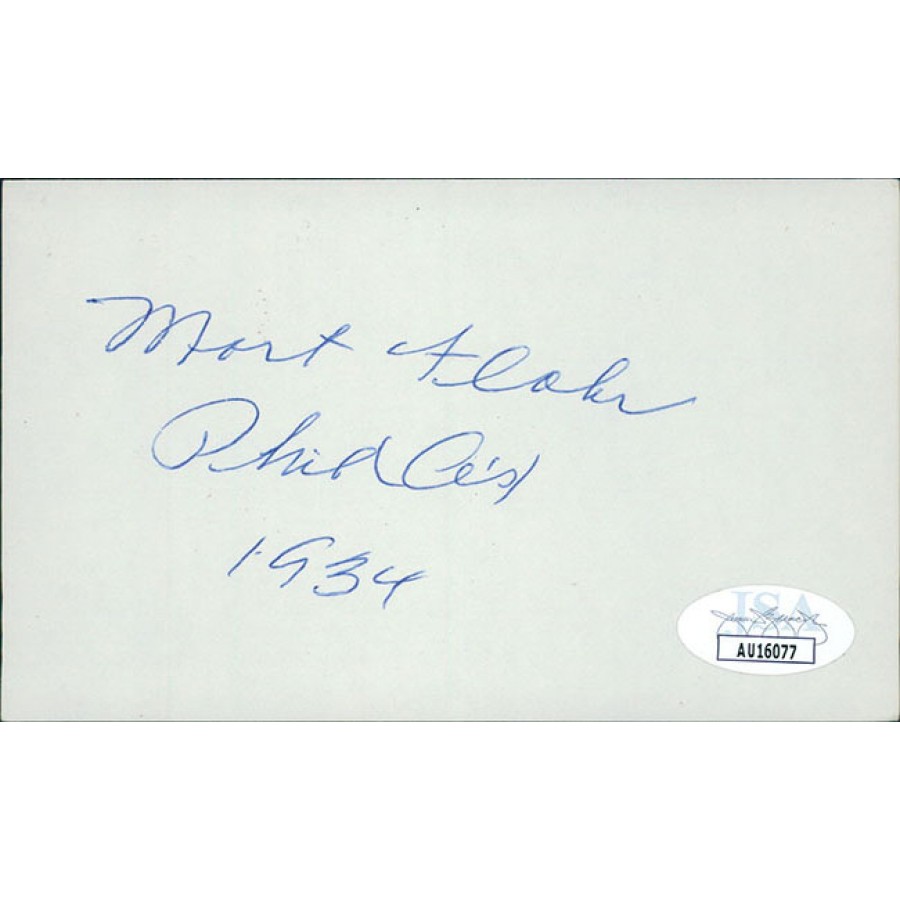 Mort Flohr
Phila A's
1934
JSA
AU16077